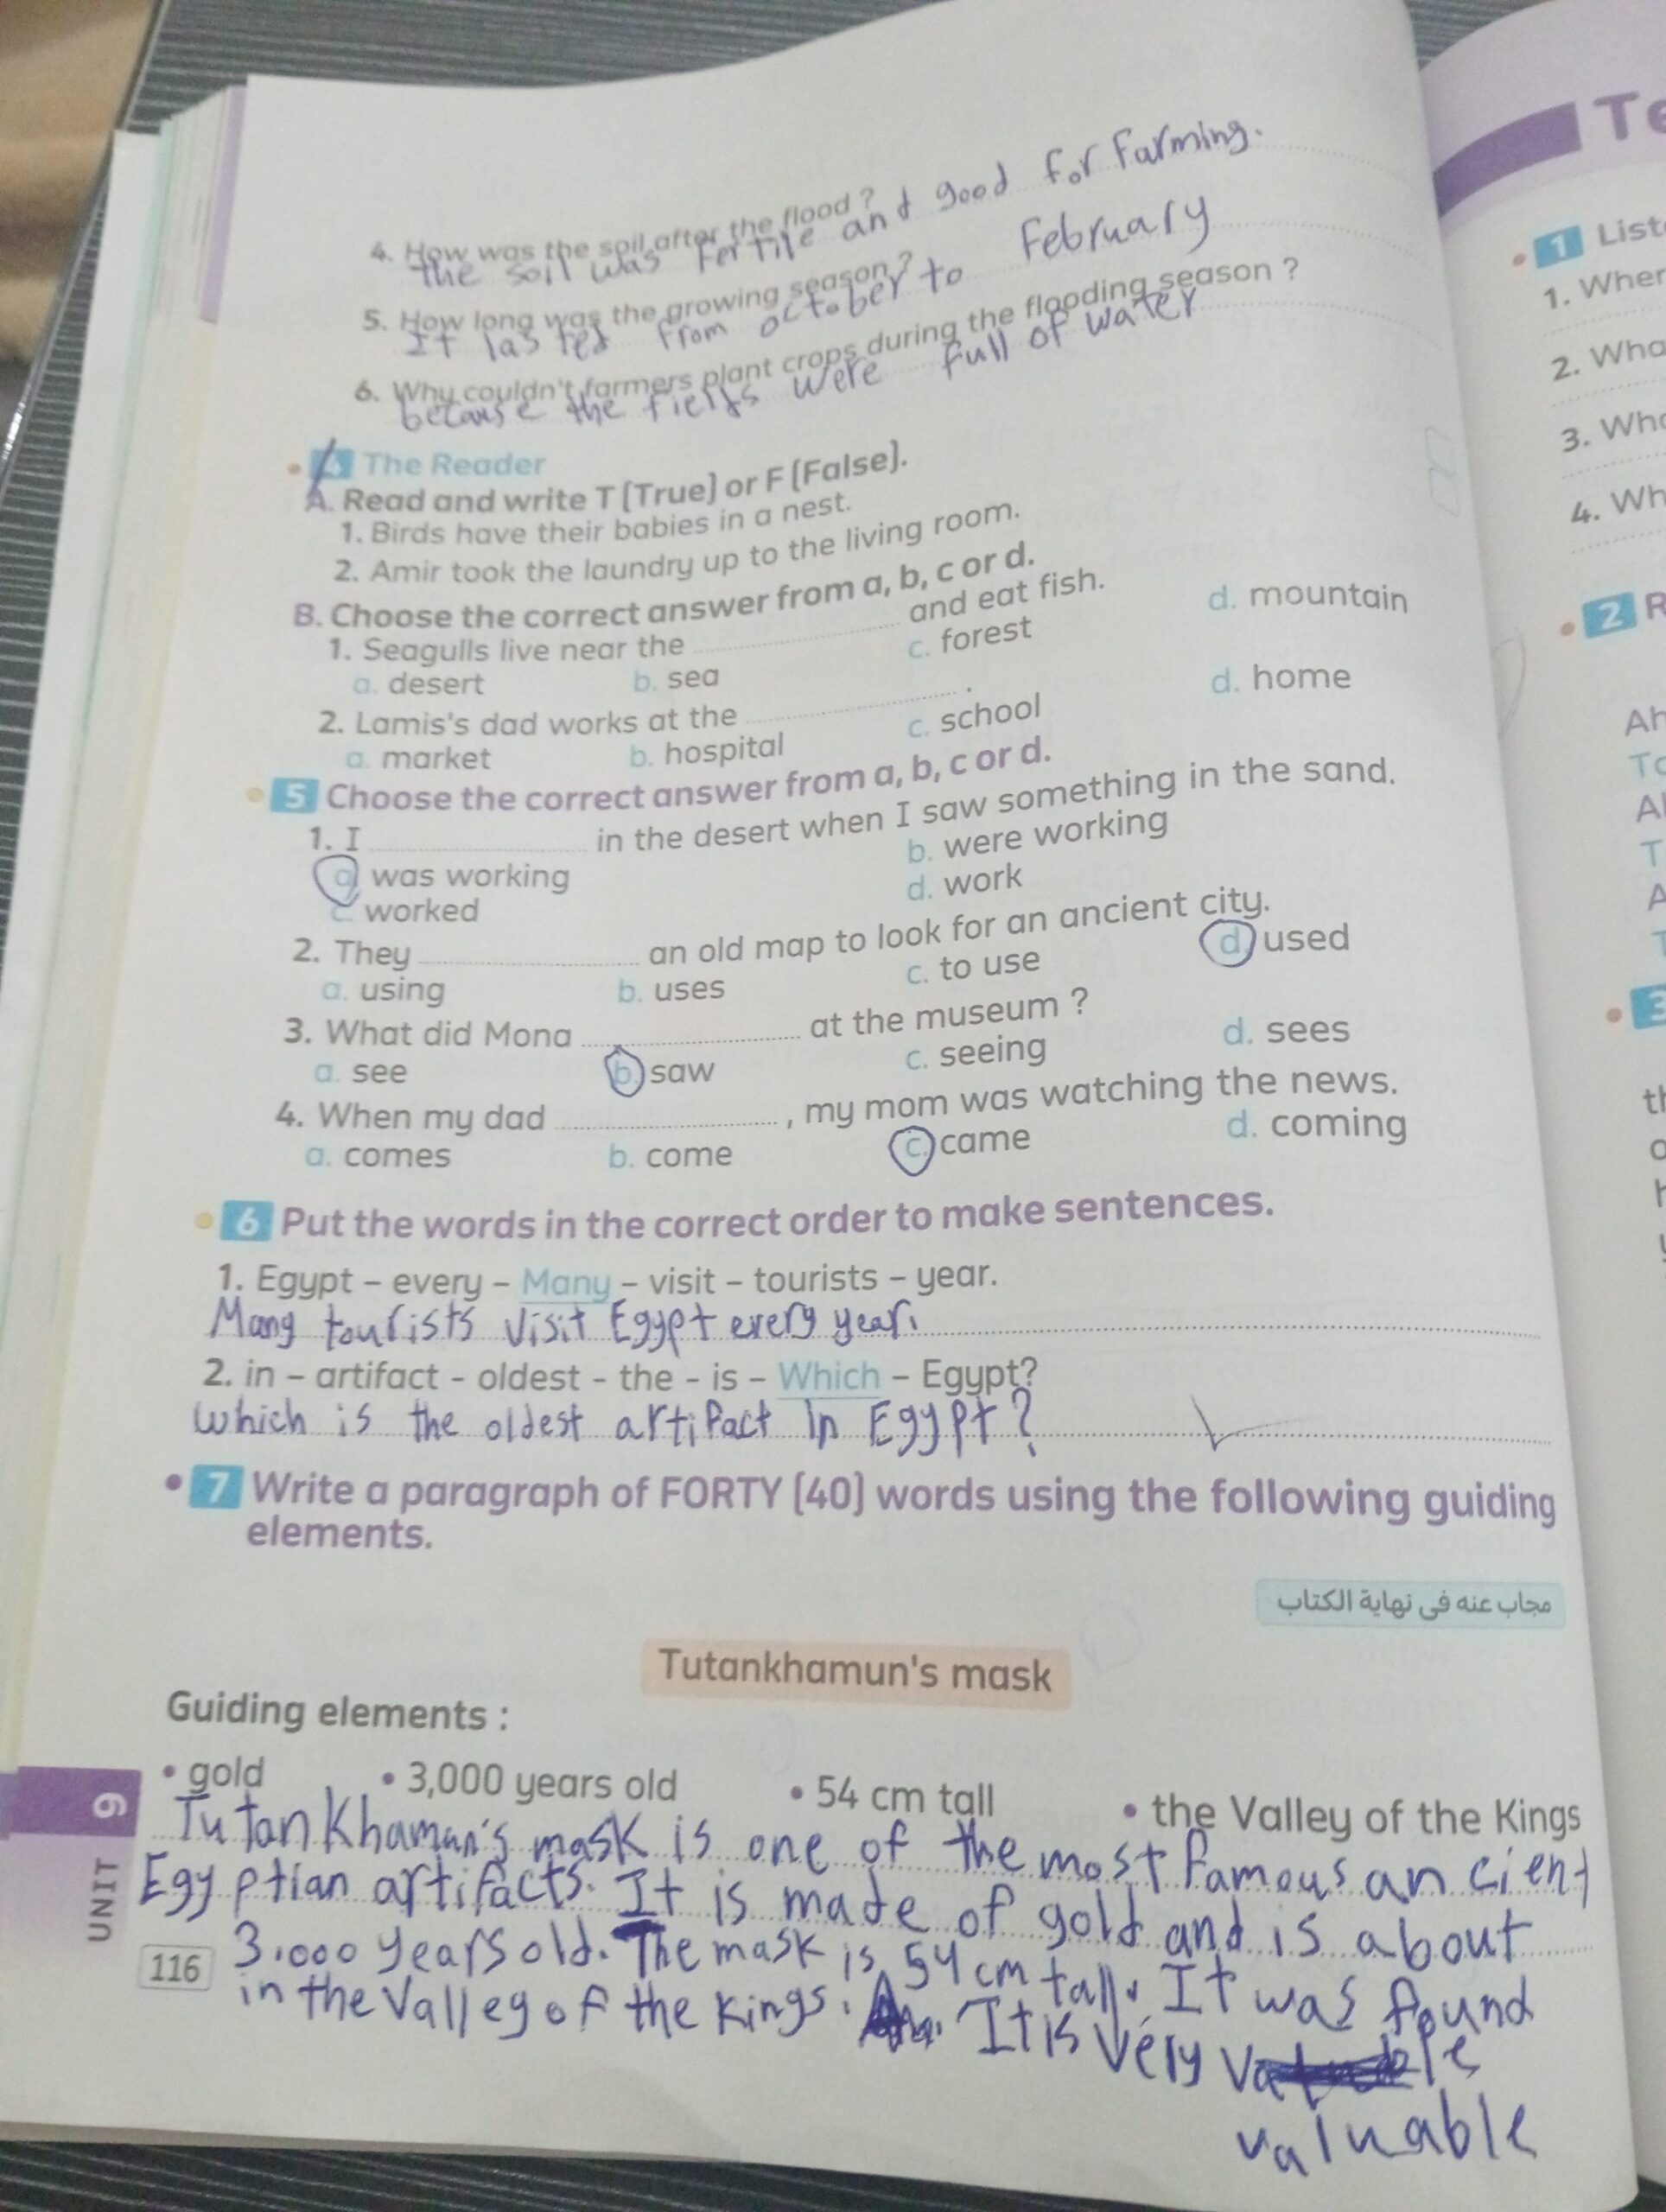 4. How was the soil after the flood ?
the soil was fertile and good for farming.
5. How long was the growing season ?
It lasted from october to February
6. Why couldn't farmers plant crops during the flooding season ?
because the fields were full of water
4 The Reader
A. Read and write T (True) or F (False).
1. Birds have their babies in a nest.
2. Amir took the laundry up to the living room.
B. Choose the correct answer from a, b, c or d.
1. Seagulls live near the ............ and eat fish.
a. desert b. sea c. forest d. mountain
2. Lamis's dad works at the ............ .
a. market b. hospital c. school d. home
5 Choose the correct answer from a, b, c or d.
1. I ............ in the desert when I saw something in the sand.
a. was working b. were working
c. worked d. work
2. They ............ an old map to look for an ancient city.
a. using b. uses c. to use d. used
3. What did Mona ............ at the museum ?
a. see b. saw c. seeing d. sees
4. When my dad ............ , my mom was watching the news.
a. comes b. come c. came d. coming
6 Put the words in the correct order to make sentences.
1. Egypt – every – Many – visit – tourists – year.
Many tourists visit Egypt every year.
2. in – artifact - oldest - the - is – Which – Egypt?
Which is the oldest artifact in Egypt?
7 Write a paragraph of FORTY (40) words using the following guiding
elements.
مجاب عنه فى نهاية الكتاب
Tutankhamun's mask
Guiding elements :
• gold • 3,000 years old • 54 cm tall • the Valley of the Kings
Tutankhamun's mask is one of the most famous ancient
Egyptian artifacts. It is made of gold and is about
3.000 years old. The mask is 54 cm tall. It was found
in the Valley of the Kings. It is very
valuable
UNIT 9
116
Te
1 List
1. Wher
2. Wha
3. Who
4. Wh
2 R
Ah
To
Al
T
A
T
3
th